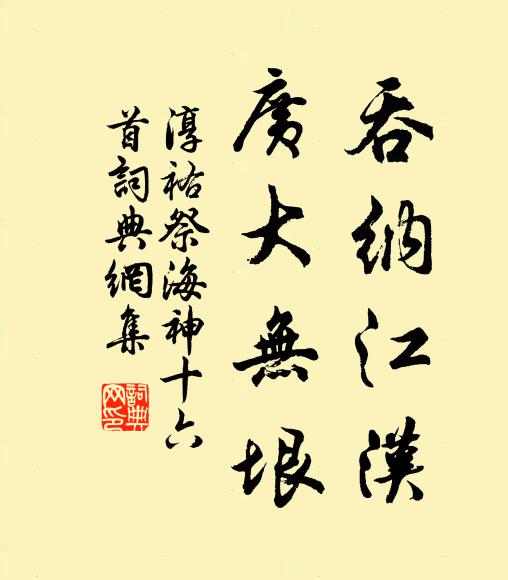 吞納江漢
廣大無垠
淳祐祭海神十六
首詞典網集
詞典
网印